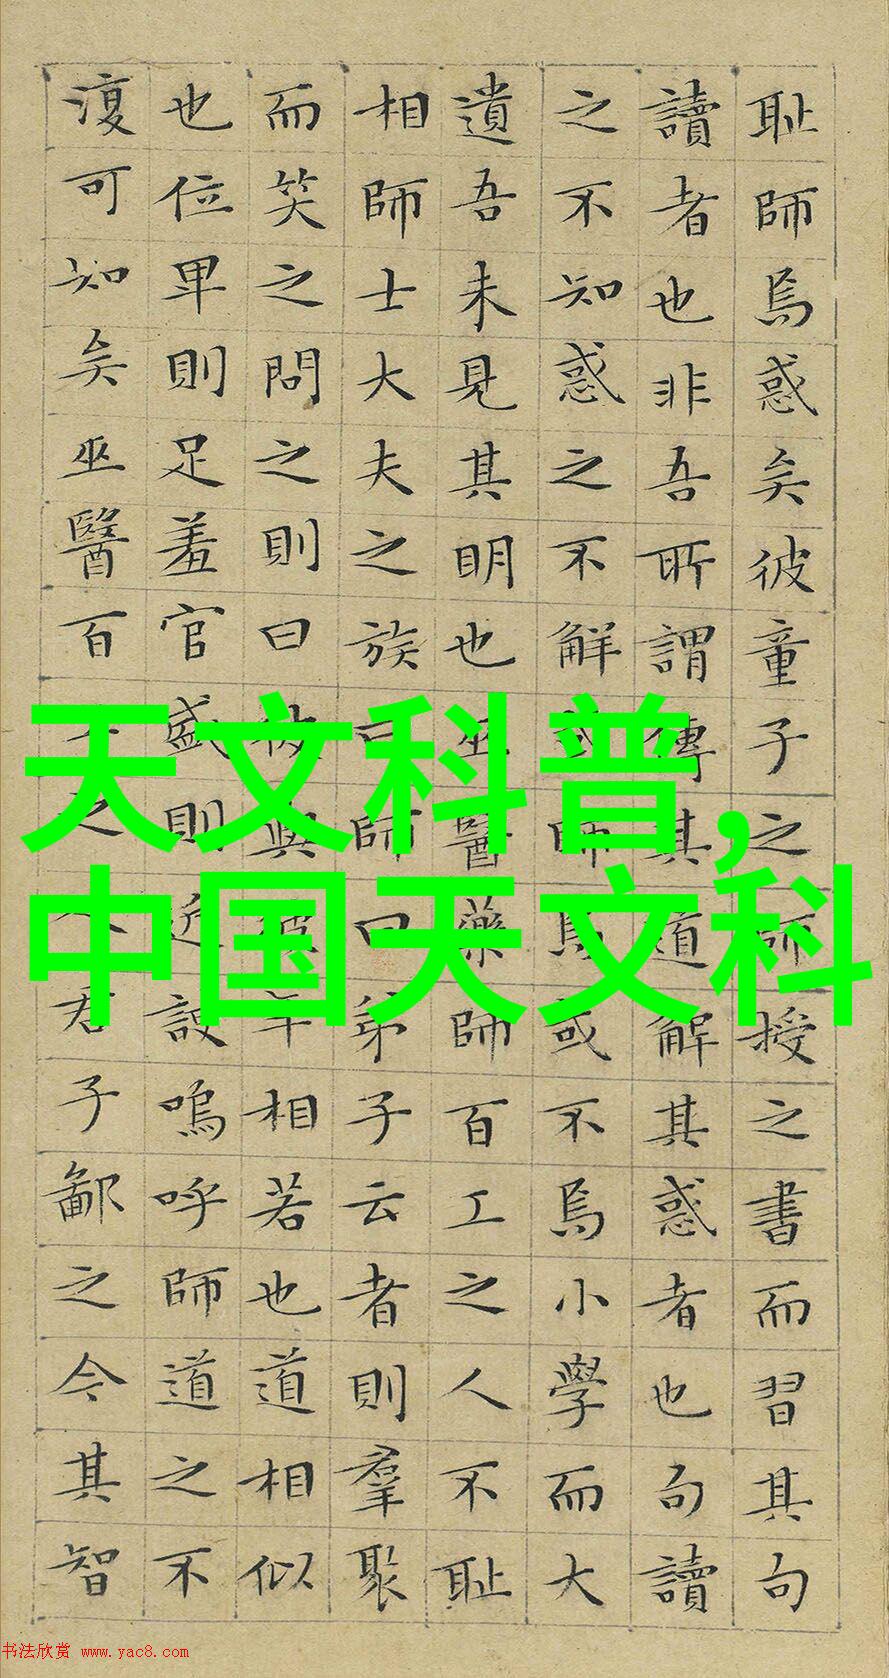 耻師焉惑矣彼童子之師授之書而習其句
讀者也非吾所謂傳其道解其惑者也句讀
之不知惑之不解或師焉或不焉小學而大
遺吾未見其明也巫醫藥師百工之人不耻
相師士大夫之族曰師曰弟子云者則羣聚
而笑之問之則曰彼與彼年相若也道相似
也位卑則足羞官盛則近諛嗚呼師道之不
復可知矣巫醫百之君子鄙之今其智
天文科普，
中国天文科
书法欣赏 www.yac8.com